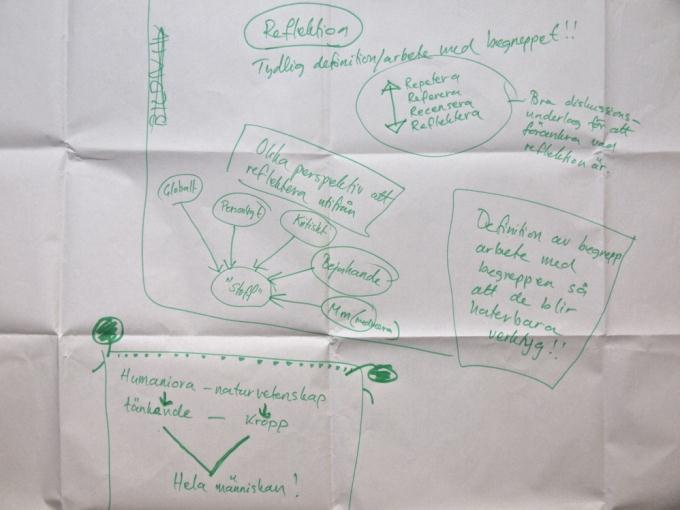 Reflektion
Tydlig definition/arbete med begreppet!!
Repetera
Referera
Recensera
Reflektera
Bra diskussions-
underlag för att
förankra vad
reflektion är.
Olika perspektiv att
reflektera utifrån
Globalt
Personligt
Kritiskt
Bejakande
Mm (med mera)
"Stoff"
Definition av begrepp
arbete med
begreppen så
att de blir
hanterbara
verktyg!!
Humaniora - naturvetenskap
tänkande - kropp
Hela människan!